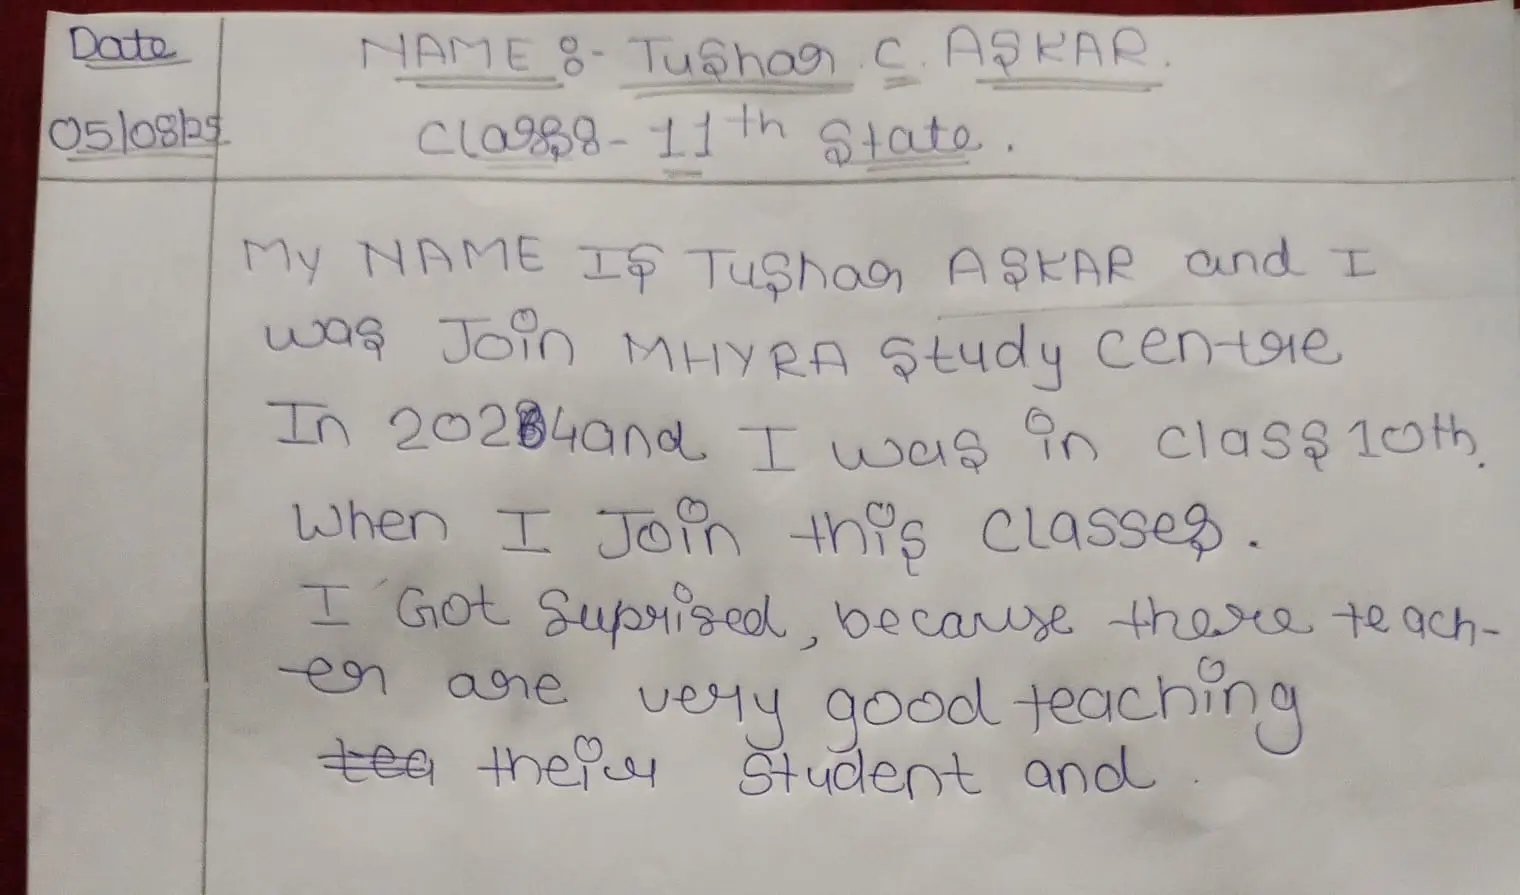 Date
NAME :- Tushar . C. ASKAR.
05/08/25
Class :- 11th State .
My NAME IS Tushar ASKAR and I
was Join MHYRA Study centre
In 2024 and I was in class 10th.
When I Join this classes .
I Got Suprised, because there teach-
er are very good teaching
tea their Student and .